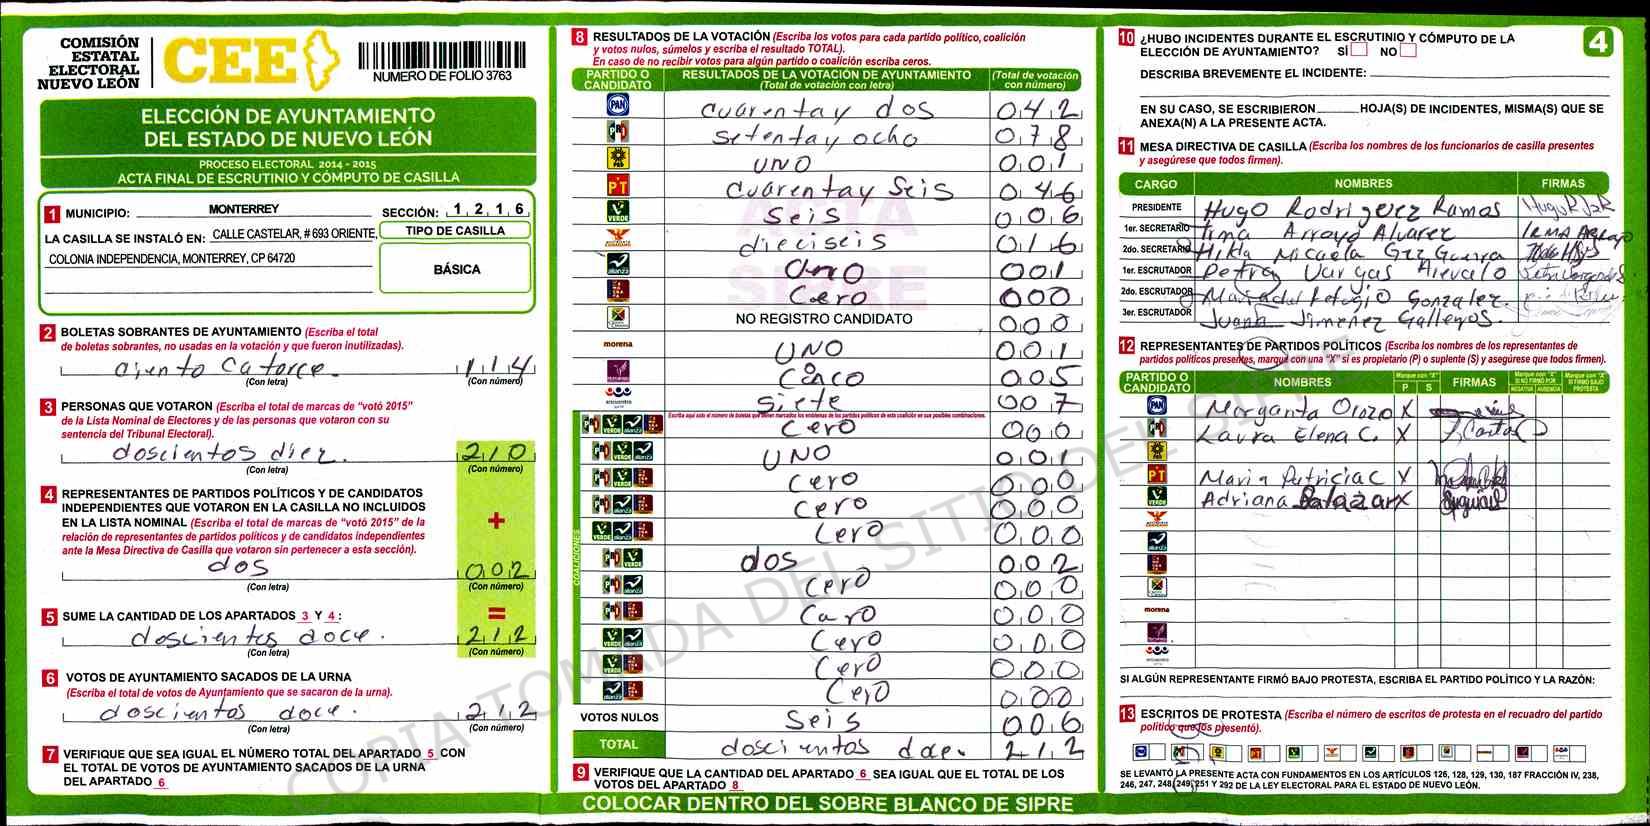 COMISIÓN
ESTATAL
ELECTORAL
NUEVO LEÓN
CEE
NUMERO DE FOLIO 3763
ELECCIÓN DE AYUNTAMIENTO
DEL ESTADO DE NUEVO LEÓN
PROCESO ELECTORAL 2014 - 2015
ACTA FINAL DE ESCRUTINIO Y CÓMPUTO DE CASILLA
1 MUNICIPIO: MONTERREY SECCIÓN: 1 2 1 6
LA CASILLA SE INSTALÓ EN: CALLE CASTELAR, # 693 ORIENTE,
COLONIA INDEPENDENCIA, MONTERREY, CP 64720
TIPO DE CASILLA
BÁSICA
2 BOLETAS SOBRANTES DE AYUNTAMIENTO (Escriba el total
de boletas sobrantes, no usadas en la votación y que fueron inutilizadas).
ciento catorce. 114
(Con letra) (Con número)
3 PERSONAS QUE VOTARON (Escriba el total de marcas de "votó 2015"
de la Lista Nominal de Electores y de las personas que votaron con su
sentencia del Tribunal Electoral).
doscientos diez. 210
(Con letra) (Con número)
4 REPRESENTANTES DE PARTIDOS POLÍTICOS Y DE CANDIDATOS
INDEPENDIENTES QUE VOTARON EN LA CASILLA NO INCLUIDOS
EN LA LISTA NOMINAL (Escriba el total de marcas de "votó 2015" de la
relación de representantes de partidos políticos y de candidatos independientes
ante la Mesa Directiva de Casilla que votaron sin pertenecer a esta sección).
+
dos 002
(Con letra) (Con número)
5 SUME LA CANTIDAD DE LOS APARTADOS 3 Y 4 : =
doscientos doce. 212
(Con letra) (Con número)
6 VOTOS DE AYUNTAMIENTO SACADOS DE LA URNA
(Escriba el total de votos de Ayuntamiento que se sacaron de la urna).
doscientos doce. 212
(Con letra) (Con número)
7 VERIFIQUE QUE SEA IGUAL EL NÚMERO TOTAL DEL APARTADO 5 CON
EL TOTAL DE VOTOS DE AYUNTAMIENTO SACADOS DE LA URNA
DEL APARTADO 6
8 RESULTADOS DE LA VOTACIÓN (Escriba los votos para cada partido político, coalición
y votos nulos, súmelos y escriba el resultado TOTAL).
En caso de no recibir votos para algún partido o coalición escriba ceros.
PARTIDO O CANDIDATO RESULTADOS DE LA VOTACIÓN DE AYUNTAMIENTO (Total de votación con letra) (Total de votación con número)
PAN cuarenta y dos 042
PRI setenta y ocho 078
PRD UNO 001
PT cuarenta y seis 046
VERDE seis 006
dieciseis 016
alianza uno 001
cero 000
NO REGISTRO CANDIDATO 000
morena UNO 001
cinco 005
encuentro siete 007
Escriba aquí solo el número de boletas que tienen marcados los emblemas de los partidos políticos de esta coalición en sus posibles combinaciones.
COALICIONES
PRI VERDE alianza cero 000
PRI VERDE alianza UNO 001
PRI VERDE cero 000
PRI alianza cero 000
VERDE alianza cero 000
PRI VERDE dos 002
PRI alianza cero 000
PRI cero 000
VERDE alianza cero 000
VERDE cero 000
alianza cero 000
VOTOS NULOS seis 006
TOTAL doscientos doce. 212
9 VERIFIQUE QUE LA CANTIDAD DEL APARTADO 6 SEA IGUAL QUE EL TOTAL DE LOS
VOTOS DEL APARTADO 8
COLOCAR DENTRO DEL SOBRE BLANCO DE SIPRE
ACTA
SIPRE
COPIA TOMADA DEL SITIO DEL SIPRE
4
10 ¿HUBO INCIDENTES DURANTE EL ESCRUTINIO Y CÓMPUTO DE LA
ELECCIÓN DE AYUNTAMIENTO? SÍ NO
DESCRIBA BREVEMENTE EL INCIDENTE:
EN SU CASO, SE ESCRIBIERON HOJA(S) DE INCIDENTES, MISMA(S) QUE SE
ANEXA(N) A LA PRESENTE ACTA.
11 MESA DIRECTIVA DE CASILLA (Escriba los nombres de los funcionarios de casilla presentes
y asegúrese que todos firmen).
CARGO NOMBRES FIRMAS
PRESIDENTE Hugo Rodriguez Ramos
1er. SECRETARIO Irma Arroyo Alvarez
2do. SECRETARIO Hilda Micaela Gzz Guerra
1er. ESCRUTADOR Petra Vargas Arevalo
2do. ESCRUTADOR Maria del Refugio Gonzalez.
3er. ESCRUTADOR Juana Jimenez Gallegos.
12 REPRESENTANTES DE PARTIDOS POLÍTICOS (Escriba los nombres de los representantes de
partidos políticos presentes, marque con una "X" si es propietario (P) o suplente (S) y asegúrese que todos firmen).
PARTIDO O CANDIDATO NOMBRES Marque con "X" P S FIRMAS Marque con "X" SI NO FIRMÓ POR NEGATIVA AUSENCIA Marque con "X" SI FIRMÓ BAJO PROTESTA
PAN Margarita Orozo X
PRI Laura Elena C. X
PRD
PT Maria Patricia C X
VERDE Adriana Balazar X
alianza
morena
encuentro
SI ALGÚN REPRESENTANTE FIRMÓ BAJO PROTESTA, ESCRIBA EL PARTIDO POLÍTICO Y LA RAZÓN:
13 ESCRITOS DE PROTESTA (Escriba el número de escritos de protesta en el recuadro del partido
político que los presentó).
SE LEVANTÓ LA PRESENTE ACTA CON FUNDAMENTOS EN LOS ARTÍCULOS 126, 128, 129, 130, 187 FRACCIÓN IV, 238,
246, 247, 248, 249, 251 Y 292 DE LA LEY ELECTORAL PARA EL ESTADO DE NUEVO LEÓN.